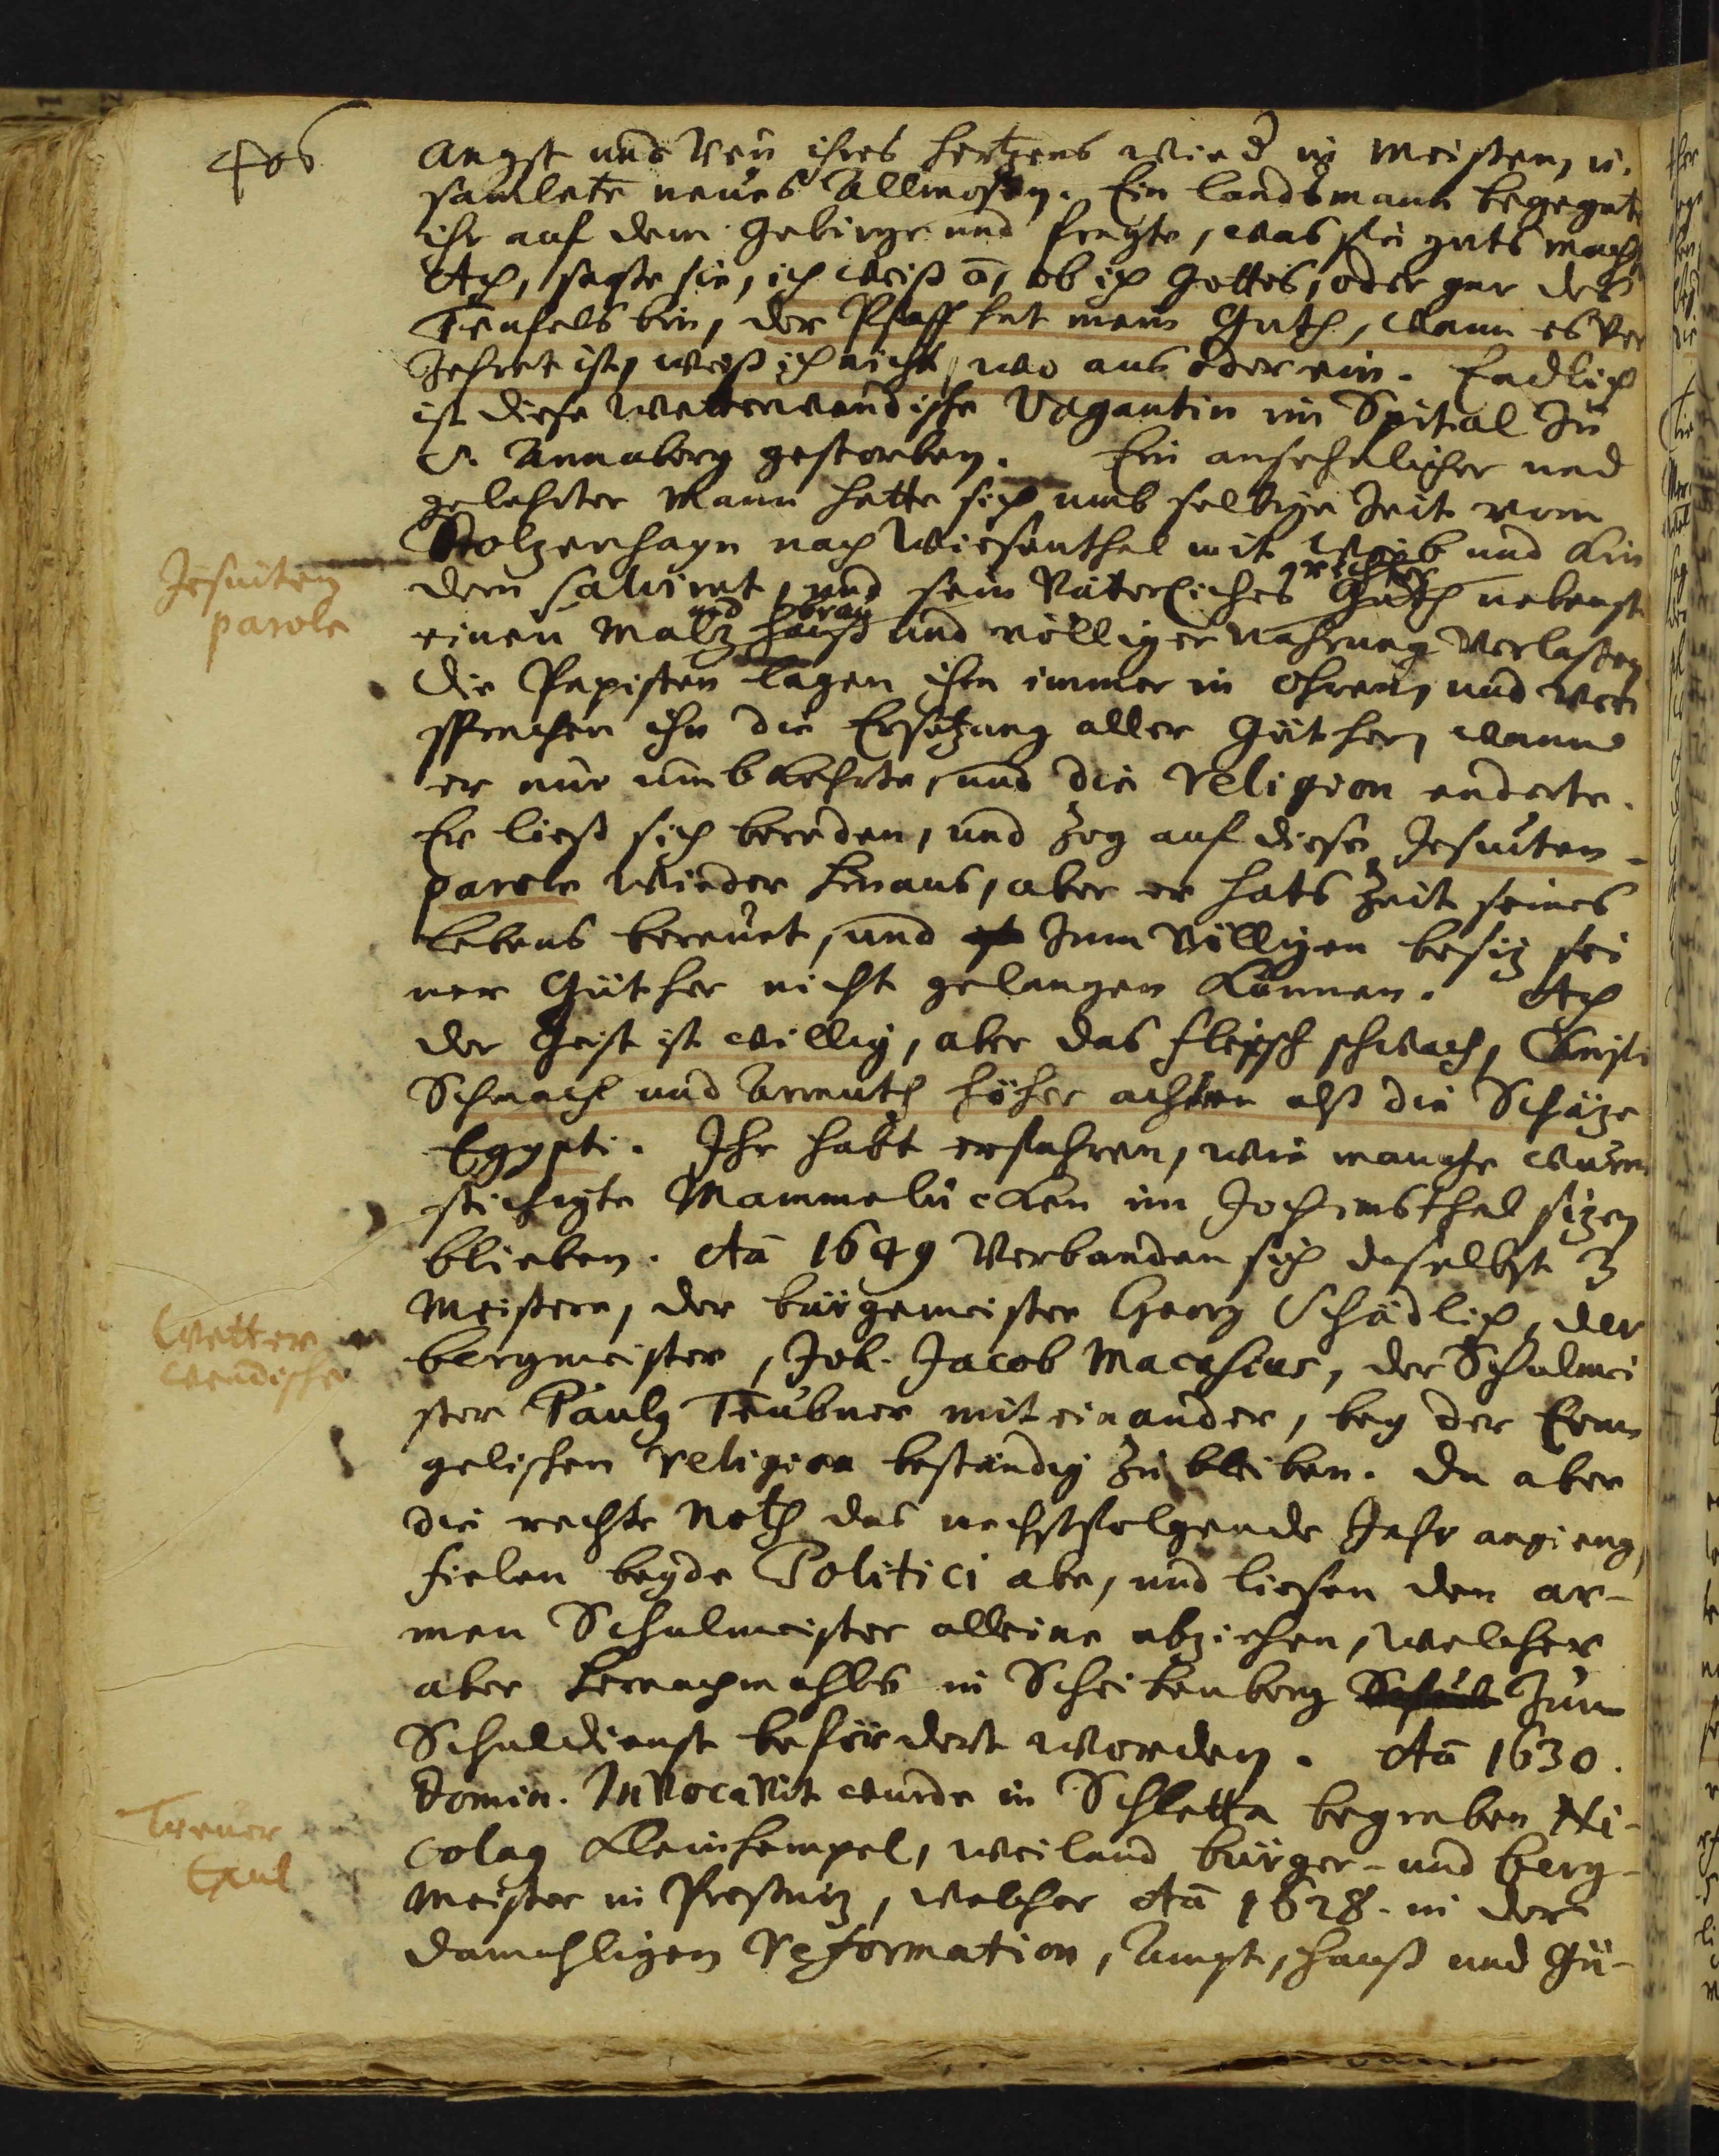 406
Angst und Reu ihres Hertzens wied in Meißen, u.
samlete neues Allmoßen. Ein Landsmann begegnte
ihr auf dem Gebirge und fragte, was sie guts macht
Ach, sagte sie, ich weiß ō, ob ich Gottes, oder gar des
Teufels bin, der Pfaff hat mein Guth, wann es ver
zehret ist, weiß ich nicht, wo aus oder ein. Endlich
ist diese wetterwendische Vagantin im Spital zu
S. Annaberg gestorben. Ein ansehnlicher und
gelehrter Mann hatte sich umb selbige Zeit vom
Stolzenhayn nach Wiesenthal mit Weib und Kin
dern salvirt, und sein Väterliches Guth nebenst
einen Maltz Hauß und völliger Nahrung verlaßen
die Papisten lagen ihm immer in Ohren, und ver
sprachen ihm die Ersetzung aller Güther, wann
er nur umbkehrte, und die Religion enderte.
Er ließ sich bereden, und zog auf diese Jesuiten-
parole wieder hinaus, aber er hats Zeit seines
Lebens bereuet, und zum völligen besiz sei
ner Güther nicht gelangen können. Ach
der Geist ist willig, aber das Fleisch schwach, Christi
Schmach und Armuth höher achten alß die Schäze
Egypti. Ihr habt erfahren, wie manche wurm
stichigte Mammelucken im Jochimsthal sizen
blieben. Aō 1649 verbanden sich daselbst 3
Meistere, der bürgemeister Georg Schädlich, der
bergmeister, Joh. Jacob Macasius, der Schulmei
ster Paulg Teubner mit einander, bey der Evan
gelischen Religion beständig zu bleiben. Da aber
die rechte Noth das nechstfolgende Jahr angieng,
fielen beyde Politici abe, und liesen den ar-
men Schulmeister alleine abziehen, welcher
aber hernachmahls in Scheibenberg zum
Schuldienst befördert worden. Aō 1630.
Domin. Invocavit wurde in Schletta begraben Ni-
colag Kleinhempel, weiland bürger- und berg-
meister in Preßniz, welcher Aō 1628. in der
damahligen Reformation, Ampt, Hauß und Gü-
Jesuiten
parole
Wetter
wendische
Treuer
Exul